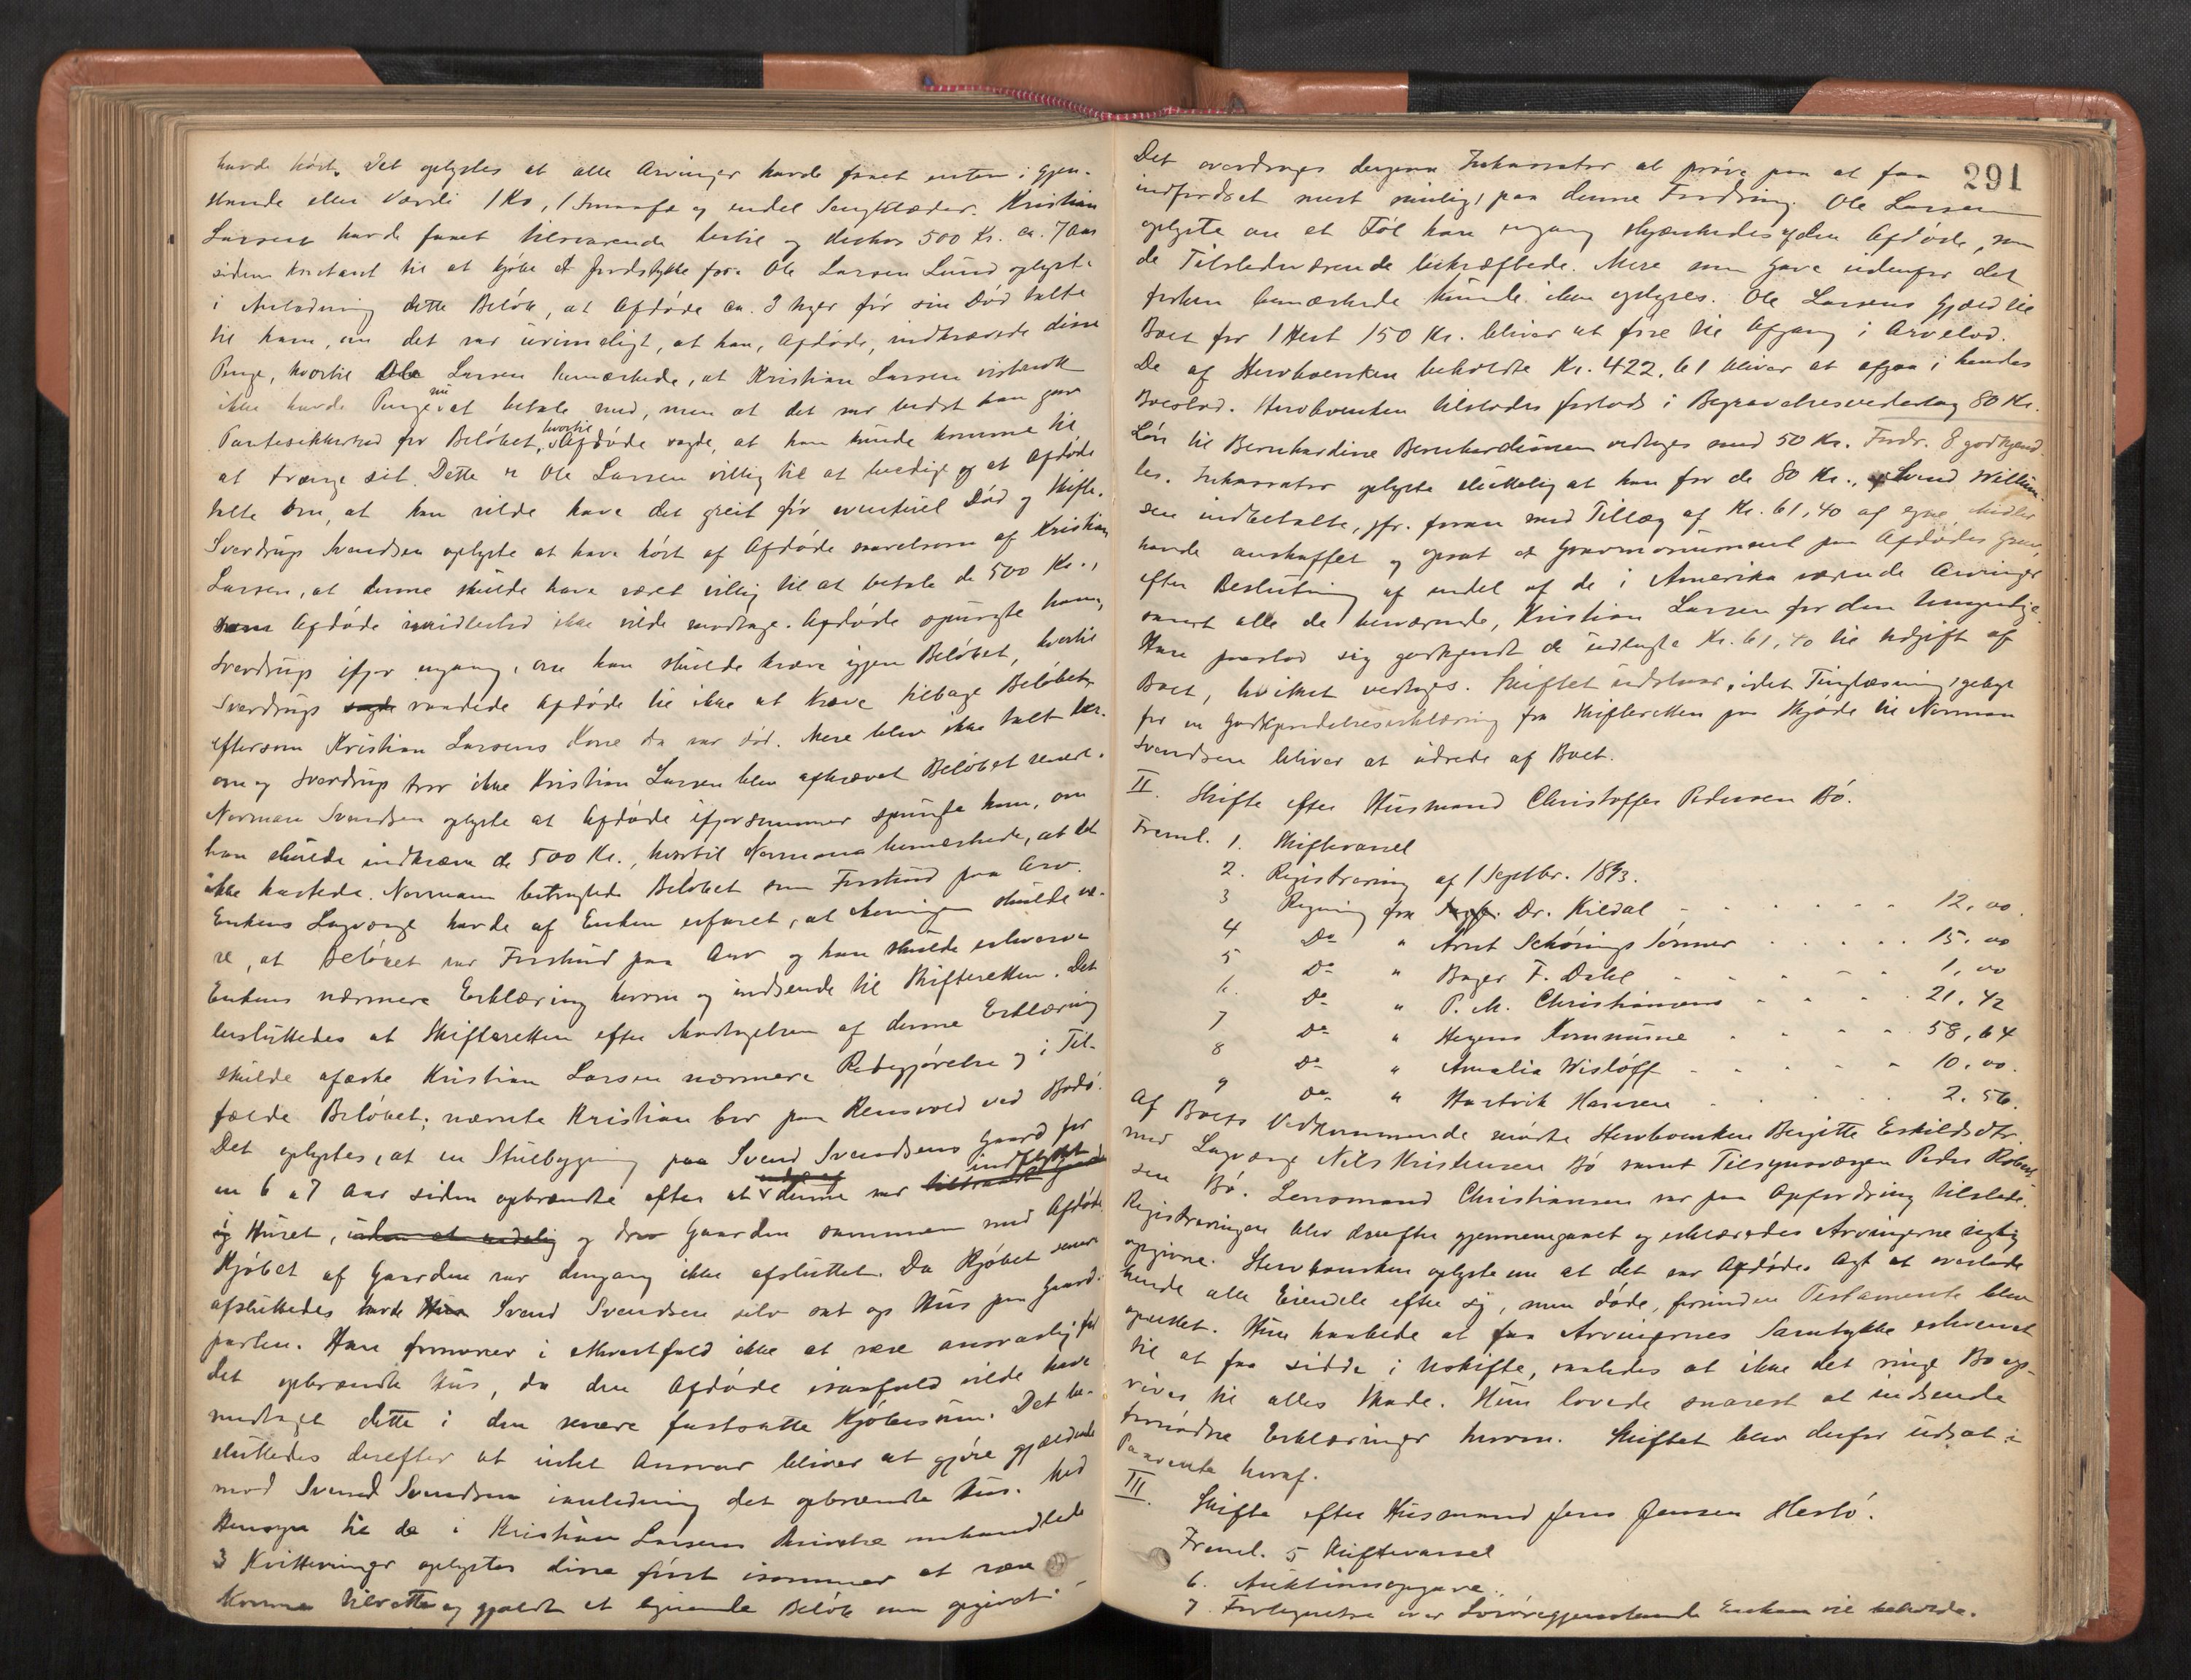 havde hørt. Det oplystes at alle Arvinger havde faaet enten i Gjen-
stande eller Værdi 1 Ko, 1 Smaafæ og endel Sengklæder. Kristian
Larsen havde faaet tilsvarende hertil og desuden 500 Kr. ca. 7 Aar
siden kontant til at kjøbe et Jordstykke for. Ole Larsen Lund oplyste
i Anledning dette Beløb, at Afdøde ca. 3 Uger før sin Død talte
til ham, om det var urimeligt, at han, Afdøde, indkrævede disse
Penge, hvortil Ole Larsen bemærkede, at Kristian Larsen vistnok
ikke havde Penge nu at betale med, men at det var bedst han gav
Pantesikkerhed for Beløbet, hvortil Afdøde sagde, at han kunde komme til
at trænge sit. Dette er Ole Larsen villig til at beedige og at Afdøde
talte om, at han vilde have det greit før eventuel Død og Skifte.
Sverdrup Svendsen oplyste at have hørt af Afdøde saavelsom af Kristian
Larsen, at denne skulde have været villig til at betale de 500 Kr.,
som Afdøde imidlertid ikke vilde modtage. Afdøde spurgte ham,
Sverdrup ifjor engang, om han skulde kræve igjen Beløbet, hvortil
Sverdrup sagde raadede Afdøde til ikke at kræve tilbage Beløbet,
eftersom Kristian Larsens Kone da var død. Mere blev ikke talt her-
om og Sverdrup tror ikke Kristian Larsen blev afkrævet Beløbet senere.
Norman Svendsen oplyste at Afdøde ifjorsommer spurgte ham, om
han skulde indkræve de 500 Kr., hvortil Norman bemærkede, at det
ikke hastede. Norman betragtede Beløbet som Forskud paa Arv.
Enkens Lagværge havde af Enken erfaret, at Meningen skulde væ-
re, at Beløbet var Forskud paa Arv og han skulde erhverve
Enkens nærmere Erklæring herom og indsende til Skifteretten. Det
besluttedes at Skifteretten efter Modtagelsen af denne Erklæring
skulde afæske Kristian Larsen nærmere Redegjørelse og i Til-
fælde Beløbet; nævnte Kristian bor paa Rensvold ved Bodø.
Det oplystes, at en Stuebygning paa Svend Svendsens Gaard for
en 6 a 7 Aar siden opbrændte efter at denne var indflyttet
i Huset, uden at endelig og drev Gaarden sammen med Afdøde.
Kjøbet af Gaarden var dengang ikke afsluttet. Da Kjøbet senere
afsluttedes havde Svend Svendsen selv sat op Hus paa Gaard-
parten. Han formener i ethvertfald ikke at være ansvarlig for
det opbrændte Hus, da den Afdøde isaafald vilde have
medtaget dette i den senere fastsatte Kjøbesum. Det be-
sluttedes derefter at intet Ansvar bliver at gjøre gjældende
mod Svend Svendsen i anledning det opbrændte Hus. Med
Hensyn til de i Kristian Larsens Skrivelse omhandlede
3 Kvitteringer oplystes disse først isommer at være
komne tilrette og gjaldt et lignende Beløb som opgivet i
291
Det overdroges derfor Inkassator at prøve paa at faa
indfordret mest muligt paa denne Fordring. Ole Larsen
oplyste om et Føl han engang skjænkedes af den Afdøde, som
de Tilstedeværende bekræftede. Mere som Gave udenfor det
forhen bemærkede kunde ikke oplyses. Ole Larsens Gjæld til
Boet for 1 Hest 150 Kr. bliver at føre til Afgang i Arvelod.
De af Stervboenken beholdte Kr. 422,61 bliver at afgaa i hendes
Boeslod. Stervboenken tilstodes forlods i Begravelsesvederlag 80 Kr.
Løn til Bernhardine Bernhardsen vedtages med 50 Kr. Fordr. 8 godkjend-
tes. Inkassator oplyste sluttelig at han for de 80 Kr., Svend William-
sen indbetalte, jfr. foran med Tillæg af Kr. 61,40 af egne Midler
havde anskaffet og opsat et Gravmonument paa Afdødes Grav,
efter Beslutning af endel af de i Amerika værende Arvinger
samt alle de herværende, Kristian Larsen for den
Han paastod sig godkjendt de udlagte Kr. 61,40 til Udgift af
Boet, hvilket vedtoges. Skiftet udstaar, idet Tinglæsning
for en Godkjendelseserklæring fra Skifteretten paa Skjøde til Norman
Svendsen bliver at udrede af Boet.
II. Skifte efter Husmand Christoffer Pedersen Bø.
Freml. 1. Skiftevarsel
2. Registrering af 1 Septbr. 1893.
3 Regning fra Dr. Kildal 12,00.
4 Do " Arnt Schønings Sønner 15,00
5 Do " Bager F. Dahl 1,00
6. Do " P. M. Christiansens 21,42
7 Do " Hegens Kommune 58,64
8 Do " Amalia Wisløff 10,00.
9 Do " Hartvik Hansen 2,56.
Af Boets Vedkommende mødte Stervboenken Bergitte Eskildsdtr.
med Lagværge Nils Kristensen Bø samt Tilsynsværgen Peder
sen Bø. Lensmand Christiansen var paa Opfordring tilstede.
Registreringen blev derefter gjennemgaaet og erklæredes Arvingerne rigtig
opgivne. Stervboenken oplyste om at det var Afdødes Agt at overlade
hende alle Eiendele efter sig, men døde, forinden Testamente blev
oprettet. Hun haabede at faa Arvingernes Samtykke erhvervet
til at faa sidde i Uskifte, saaledes at ikke det ringe Bo op-
rives til alles Skade. Hun lovede snarest at indsende
fornødne Erklæringer herom. Skiftet blev derfor udsat i
Paavente heraf.
III. Skifte efter Husmand Jens Jensen Hestø.
Freml. 5 Skiftevarsel
6. Auktionsopgave.
7. Fortegnelse over Løsøregjenstande Enken vil beholde.